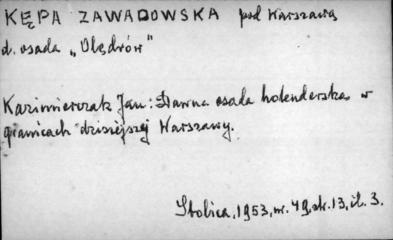 KĘPA ZAWADOWSKA pod Warszawą
d. osada „Olędrów"
Kazimierczak Jan: Dawna osada holenderska w
granicach dzisiejszej Warszawy.
Stolica, 1953, nr. 49, str. 13, il. 3.